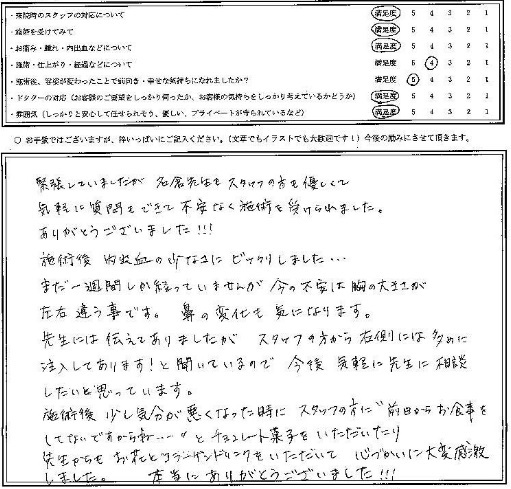 ・来院時のスタッフの対応について 満足度 5 4 3 2 1
・施術を受けてみて 満足度 5 4 3 2 1
・お痛み・腫れ・内出血などについて 満足度 5 4 3 2 1
・施術・仕上がり・経過などについて 満足度 5 4 3 2 1
・施術後、容姿が変わったことで前向き・幸せな気持ちになれましたか? 満足度 5 4 3 2 1
・ドクターの対応(お客様のご要望をしっかり伺ったか、お客様の気持ちをしっかり考えているかどうか) 満足度 5 4 3 2 1
・雰囲気(しっかりと安心して任せられそう、優しい、プライベートが守られているなど) 満足度 5 4 3 2 1
○ お手数ではございますが、枠いっぱいにご記入ください。(文章でもイラストでも大歓迎です!)今後の励みにさせて頂きます。
緊張していましたが 名倉先生もスタッフの方も優しくて
気軽に質問もできて不安なく施術を受けられました。
ありがとうございました!!!
施術後 内出血の少なさに ビックリしました…
まだ一週間しか経っていませんが 今の不安は胸の大きさが
左右違う事です。 鼻の変化も気になります。
先生には伝えてありましたが スタッフの方から右側には多めに
注入してあります!と聞いているので 今後 気軽に先生に相談
したいと思っています。
施術後 少し気分が悪くなった時に スタッフの方に"前日からお食事を
してないですからね…"と チョコレート菓子をいただいたり
先生からも お花とコラーゲンドリンクをいただいて 心づかいに大変感激
しました。 本当にありがとうございました!!!